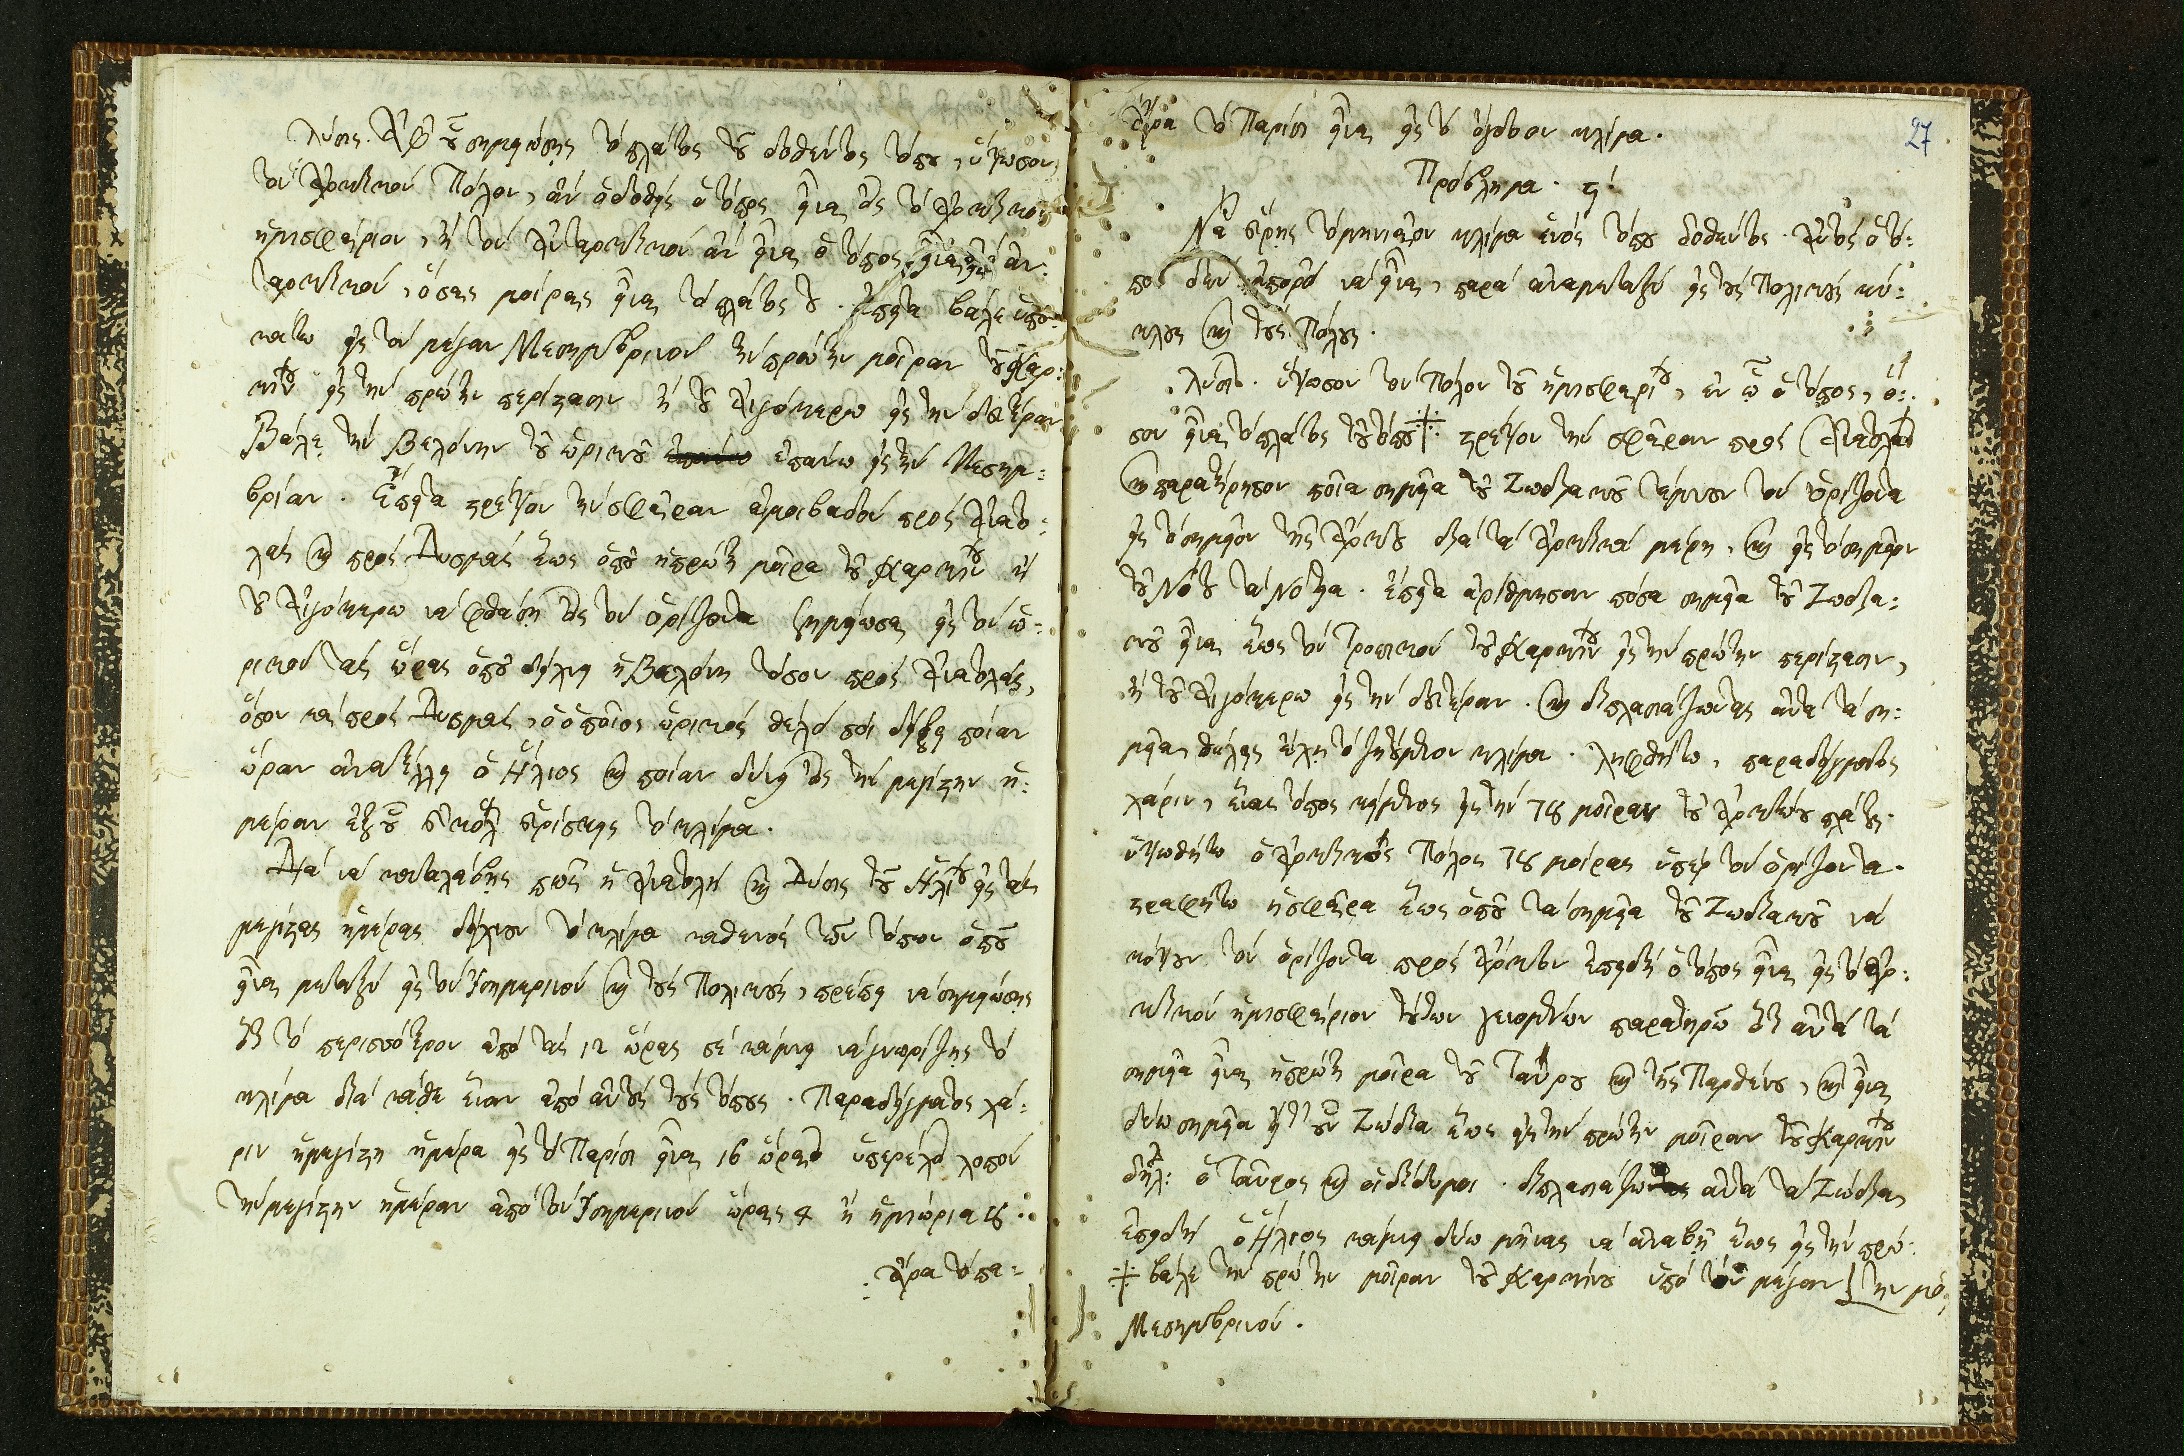 Λύσις. Ἀφ' οὗ σημειώσῃς τὸ πλάτος τοῦ δοθέντος τόπου, ὕψωσον
τὸν Ἀρκτικὸν Πόλον, ἂν ὁ δοθεὶς ὁ τόπος εἶναι εἰς τὸ Ἀρκτικὸν
ἡμισφαίριον, ἢ τὸν Ἀνταρκτικὸν ἂν εἶναι ὁ τόπος εἰς τὸ ἀν:
ταρκτικόν, ὅσας μοίρας εἶναι τὸ πλάτος του. Ἔπειτα βάλε ὑπο:
κάτω εἰς τὸν μέγαν Μεσημβρινὸν τὴν πρώτην μοῖραν τοῦ Καρ:
κίνου εἰς τὴν πρώτην περίστασιν ἢ τοῦ Αἰγόκερω εἰς τὴν δευτέραν
Βάλε τὴν βελόνην τοῦ ὡρικοῦ ἐπάνω εἰς τὴν Μεσημ:
βρίαν. Ἔπειτα στρέψον τὴν σφαῖραν ἀμοιβαδὸν πρὸς Ἀνατο:
λὰς καὶ πρὸς Δυσμὰς ἕως ὁποῦ ἡ πρώτη μοῖρα τοῦ Καρκίνου ἢ
τοῦ Αἰγόκερω νὰ φθάσῃ εἰς τὸν ὁρίζοντα σημείωσαι εἰς τὸν ὡ:
ρικὸν τὰς ὥρας ὁποῦ δείχνει ἡ Βελόνη τόσον πρὸς Ἀνατολὰς,
ὅσον καὶ πρὸς Δυσμάς, ὁ ὁποῖος ὡρικὸς θέλει σοὶ δείξῃ ποίαν
ὥραν ἀνατέλλει ὁ Ἥλιος καὶ ποίαν δύνει εἰς τὴν μεγίστην ἡ:
μέραν ἐξ οὗ εὐκόλ εὑρίσκεις τὸ κλίμα.
Διὰ νὰ καταλάβῃς πῶς ἡ Ἀνατολὴ καὶ Δύσις τοῦ Ἡλίου εἰς τὰς
μεγίστας ἡμέρας δείχνουν τὸ κλίμα καθενὸς τῶν τόπων ὁποῦ
εἶναι μεταξὺ εἰς τὸν Ἰσημερινὸν καὶ τοὺς Πολικούς, πρέπει νὰ σημειώσῃς
ὅτι τὸ περισσότερον ἀπὸ τὰς 12 ὥρας σὲ κάμνει νὰ γνωρίζῃς τὸ
κλίμα διὰ κάθε ἕναν ἀπὸ αὐτοὺς τοὺς τόπους. Παραδείγματος χά:
ριν ἡ μεγίστη ἡμέρα εἰς τὸ Παρίσι εἶναι 16 ὥραις ὑπερέχει λοιπὸν
τὴν μεγίστην ἡμέραν ἀπὸ τὸν Ἰσημερινὸν ὥρας 4 ἢ ἡμιώρια 8
Ἄρα τὸ Πα=
27
Ἄρα τὸ Παρίσι εἶναι εἰς τὸ ὄγδοον κλίμα.
Πρόβλημα. ϛ΄.
Νὰ εὕρῃς τὸ μηνιαῖον κλίμα ἑνὸς τόπου δοθέντος. Αὐτὸς ὁ τό:
πος δὲν ἠμπορεῖ νὰ εἶναι, παρὰ ἀναμεταξὺ εἰς τοὺς Πολικοὺς κύ:
κλους καὶ τοὺς Πόλους.
Λύσις. ὕψωσον τὸν Πόλον τοῦ ἡμισφαιρίου, ἐν ᾧ ὁ τόπος, ὅ:
σον εἶναι τὸ πλάτος τοῦ τόπου ※ στρέψον τὴν σφαῖραν πρὸς Ἀνατολὰς
καὶ παρατήρησον ποῖα σημεῖα τοῦ Ζωδιακοῦ τέμνουν τὸν ὁρίζοντα
εἰς τὸ σημεῖον τῆς Ἄρκτου διὰ τὰ Ἀρκτικὰ μέρη, καὶ εἰς τὸ σημεῖον
τοῦ Νότου τὰ Νότια. Ἔπειτα ἀρίθμησον πόσα σημεῖα τοῦ Ζωδια:
κοῦ εἶναι ἕως τὸν Τροπικὸν τοῦ Καρκίνου εἰς τὴν πρώτην περίστασιν,
ἢ τοῦ Αἰγόκερω εἰς τὴν δευτέραν. καὶ διπλασιάζωντας αὐτὰ τὰ ση:
μεῖα, θέλεις εὕρῃ τὸ ζητούμενον κλίμα. Ληφθήτω, παραδείγματος
χάριν, ἕνας τόπος κείμενος εἰς τὴν 78 μοῖραν τοῦ Ἀρκτικοῦ πλάτους.
ὑψωθήτω ὁ Ἀρκτικὸς Πόλος 78 μοίρας ὑπὲρ τὸν ὁρίζοντα.
στραφήτω ἡ σφαῖρα ἕως ὁποῦ τὰ σημεῖα τοῦ Ζωδιακοῦ νὰ
κόψουν τὸν ὁρίζοντα πρὸς Ἄρκτον ἐπειδὴ ὁ τόπος εἶναι εἰς τὸ Ἀρ:
κτικὸν ἡμισφαίριον τούτων γενομένων παρατηρῶ ὅτι αὐτὰ τὰ
σημεῖα εἶναι ἡ πρώτη μοῖρα τοῦ Ταύρου καὶ τῆς Παρθένου, καὶ εἶναι
δύω σημεῖα ἤτοι Ζώδια ἕως εἰς τὴν πρώτην μοῖραν τοῦ Καρκίνου
δηλ: ὁ Ταῦρος καὶ οἱ δίδυμοι. διπλασιάζω αὐτὰ τὰ Ζώδια,
ἐπειδὴ ὁ Ἥλιος κάμνει δύω μῆνας νὰ ἀναβῇ ἕως εἰς τὴν πρώ:
※ βάλε τὴν πρώτην μοῖραν τοῦ Καρκίνου ὑπὸ τὸν μέγαν την μοῖ:
Μεσημβρινόν.